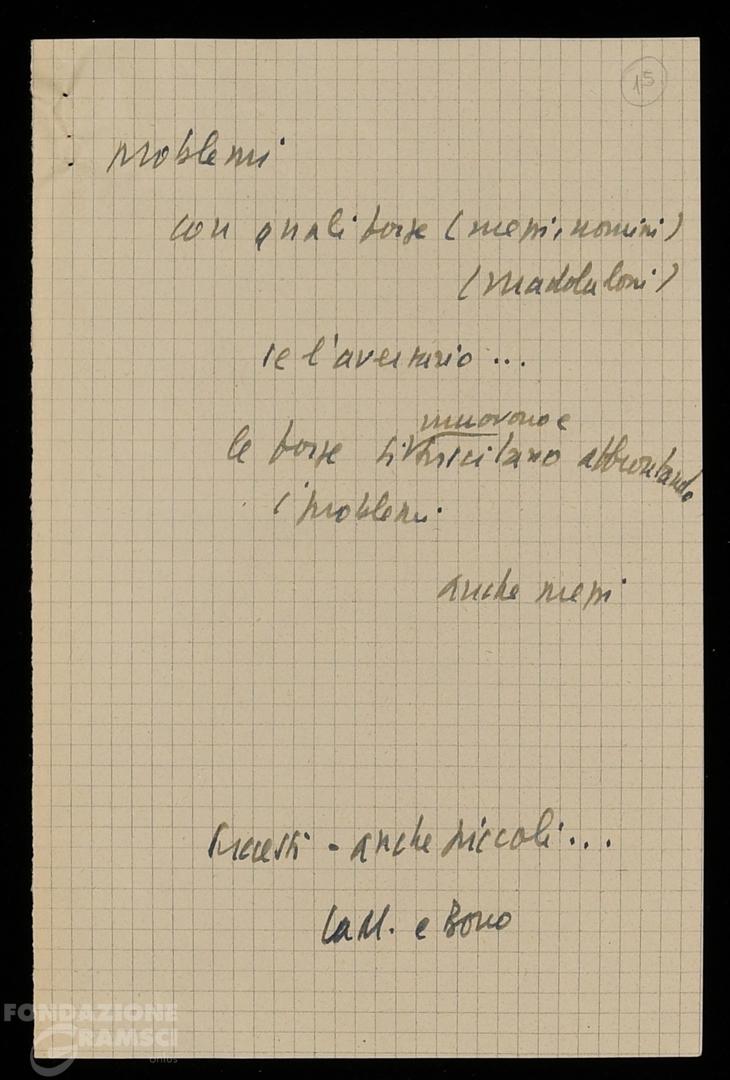 15
problemi
con quali forze (mezzi, uomini)
(Maddaloni)
se l'avversario ...
muovono e
le forze si suscitano affrontando
i problemi
anche mezzi
successi - anche piccoli ...
La M. e Bono
FONDAZIONE
GRAMSCI
onlus